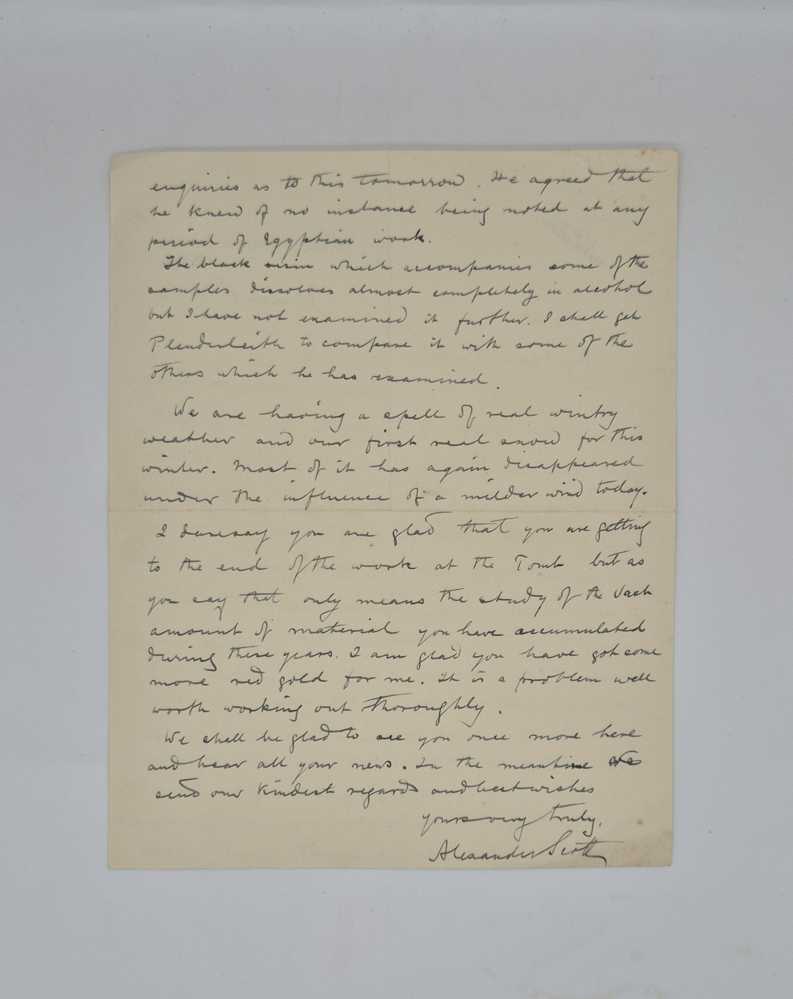 enquiries as to this tomorrow. He agreed that
he knew of no instance being noted at any
period of Egyptian work.
The black resin which accompanies some of the
samples dissolves almost completely in alcohol
but I have not examined it further. I shall get
Plenderleith to compare it with some of the
others which he has examined.
We are having a spell of real wintry
weather and our first real snow for this
winter. Most of it has again disappeared
under the influence of a milder wind today.
I daresay you are glad that you are getting
to the end of the work at the Tomb but as
you say that only means the study of the vast
amount of material you have accumulated
during these years. I am glad you have got some
more red gold for me. It is a problem well
worth working out thoroughly.
We shall be glad to see you once more here
and hear all your news. In the meantime we
send our kindest regards and best wishes
yours very truly,
Alexander Scott